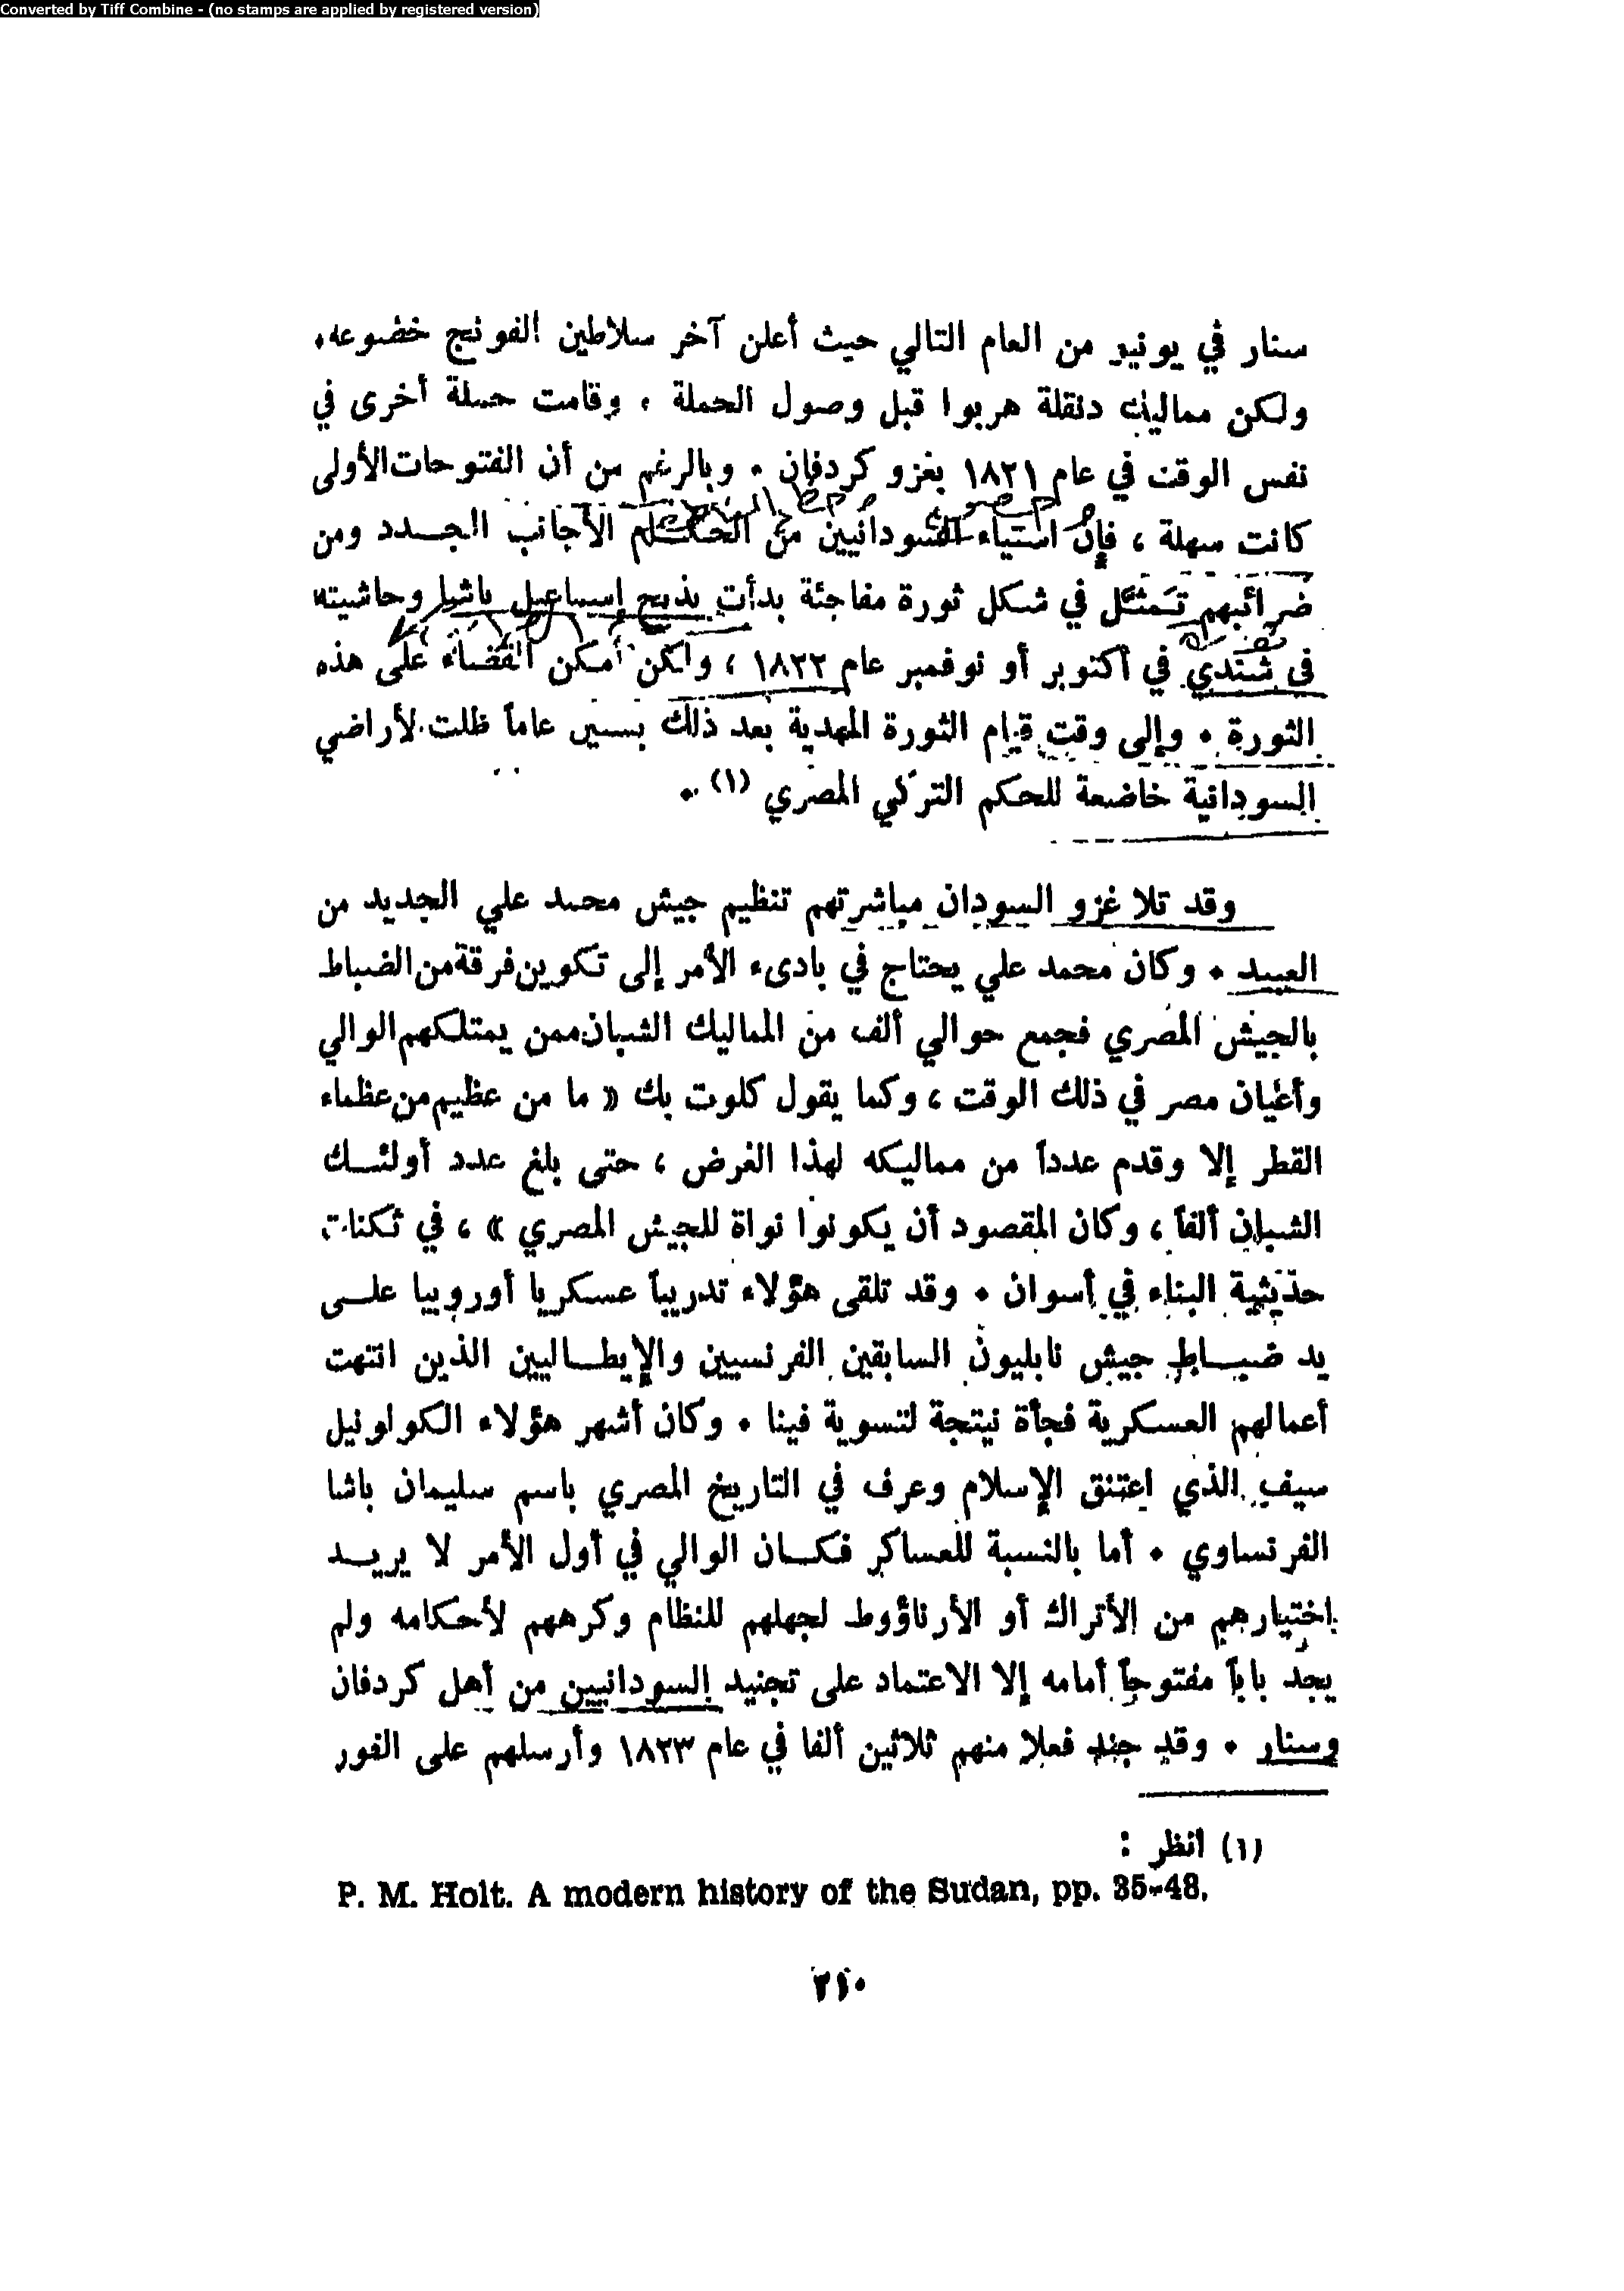 Converted by Tiff Combine - (no stamps are applied by registered version)
سنار في يونيو من العام التالي حيث أعلن آخر سلاطين الفونج خضوعه.
ولكن مماليك دنقلة هربوا قبل وصول الحملة ، وقامت حملة أخرى في
نفس الوقت في عام ١٨٢١ بغزو كردفان . وبالرغم من أن الفتوحات الأولى
كانت سهلة ، فإن استياء السودانيين من الحكام الأجانب الجدد ومن
ضرائبهم تمثل في شكل ثورة مفاجئة بدأت بذبح إسماعيل باشا وحاشيته
في شندي في أكتوبر أو نوفمبر عام ١٨٢٢ ، ولكن أمكن القضاء على هذه
الثورة . وإلى وقت قيام الثورة المهدية بعد ذلك بستين عاماً ظلت الأراضي
السودانية خاضعة للحكم التركي المصري (١) .
وقد تلا غزو السودان مباشرتهم تنظيم جيش محمد علي الجديد من
العبيد . وكان محمد علي يحتاج في بادىء الأمر إلى تكوين فرقة من الضباط
بالجيش المصري فجمع حوالي ألف من المماليك الشبان ممن يمتلكهم الوالي
وأعيان مصر في ذلك الوقت ، وكما يقول كلوت بك « ما من عظيم من عظماء
القطر إلا وقدم عدداً من مماليكه لهذا الغرض ، حتى بلغ عدد أولئــك
الشبان ألفاً ، وكان المقصود أن يكونوا نواة للجيش المصري » ، في ثكنات
حديثية البناء في أسوان . وقد تلقى هؤلاء تدريباً عسكريا أوروبيا علــى
يد ضبــاط جيش نابليون السابقين الفرنسيين والإيطــاليين الذين انتهت
أعمالهم العسكرية فجأة نيتجة لتسوية فينا . وكان أشهر هؤلاء الكولونيل
سيف الذي اعتنق الإسلام وعرف في التاريخ المصري باسم سليمان باشا
الفرنساوي . أما بالنسبة للعساكر فكــان الوالي في أول الأمر لا يريــد
اختيارهم من الأتراك أو الأرناؤوط لجهلهم للنظام وكرههم لأحكامه ولم
يجد باباً مفتوحاً أمامه إلا الاعتماد على تجنيد السودانيين من أهل كردفان
وسنار . وقد جند فعلا منهم ثلاثين ألفا في عام ١٨٢٣ وأرسلهم على الفور
(١) انظر :
P. M. Holt. A modern history of the Sudan, pp. 35-48.
٢١٠